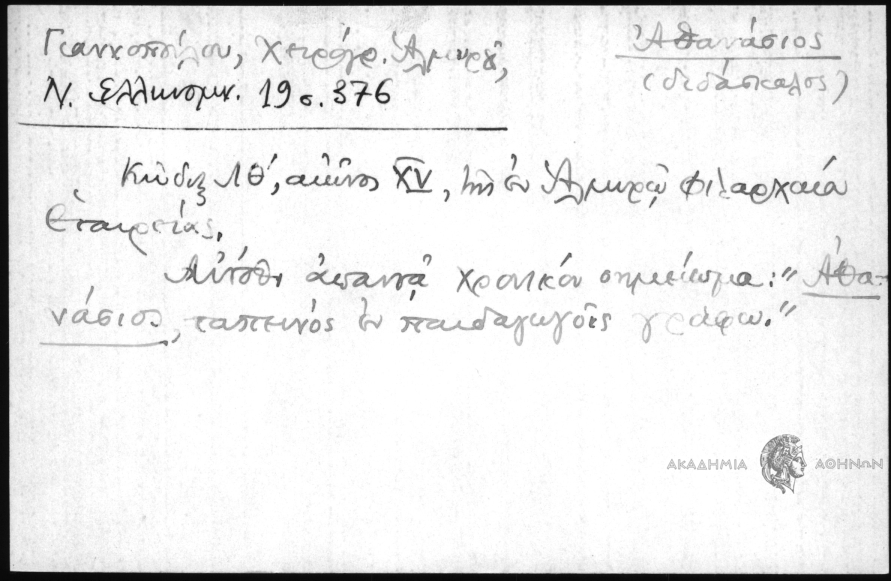 Γιαννοπούλου, Χειρόγρ. Ἁλμυροῦ,
Ν. Ἑλληνομν. 19 σ. 376
Ἀθανάσιος
(διδάσκαλος)
Κῶδιξ ΛΘ', αἰῶνος XV, τῆς ἐν Ἁλμυρῷ φιλαρχαίου
Ἑταιρείας.
Αὐτόθι ἀπαντᾷ χρονικόν σημείωμα: " Ἀθα-
νάσιος, ταπεινός ἐν παιδαγωγοῖς γράφω."
ΑΚΑΔΗΜΙΑ ΑΘΗΝΩΝ